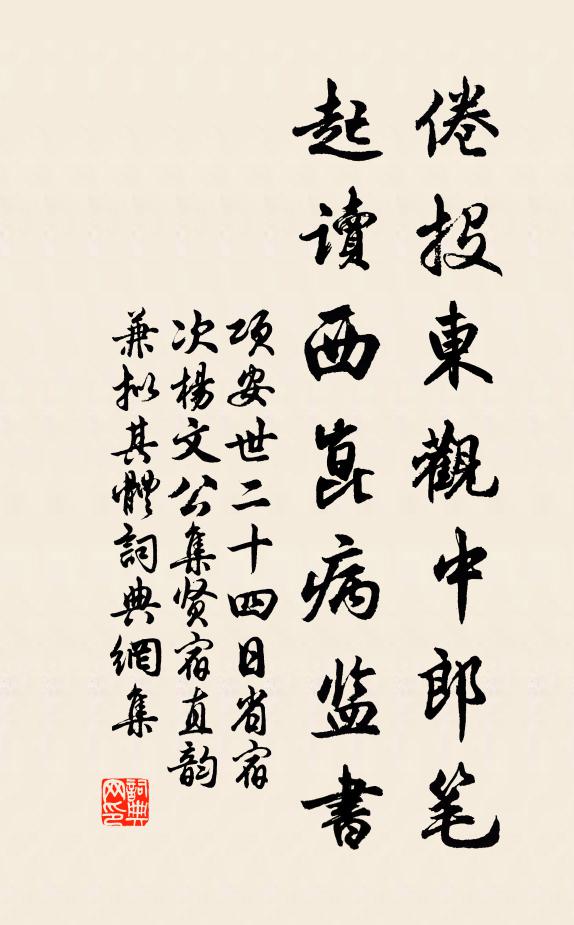 倦投東觀中郎笔
起讀西崑病监書
项安世二十四日省宿
次楊文公集贤宿直韵
兼拟其體詞典網集
詞典网印